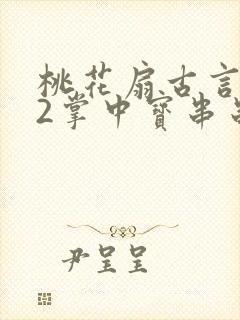 桃花扇古言
2掌中寳串
尹呈呈